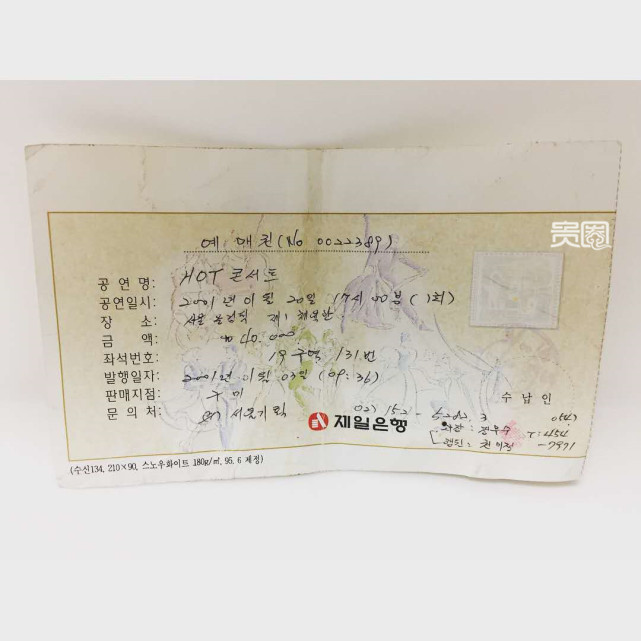 贵圈
예매권(No 0022389)
공 연 명: HOT 콘서트
공연일시: 2001년 01월 20일 17시 00분 ( 1회)
장 소: 서울 올림픽 제1체육관
금 액: ₩ 40,000
좌석번호: 19구역 131번
발행일자: 2001년 01월 03일 (09:36)
판매지점: 구 미
수 납 인
문 의 처: 서울기획 02)
제일은행
차장: T: 454
-7971
(수신134, 210×90, 스노우화이트 180g/㎡, 95. 6 제정)